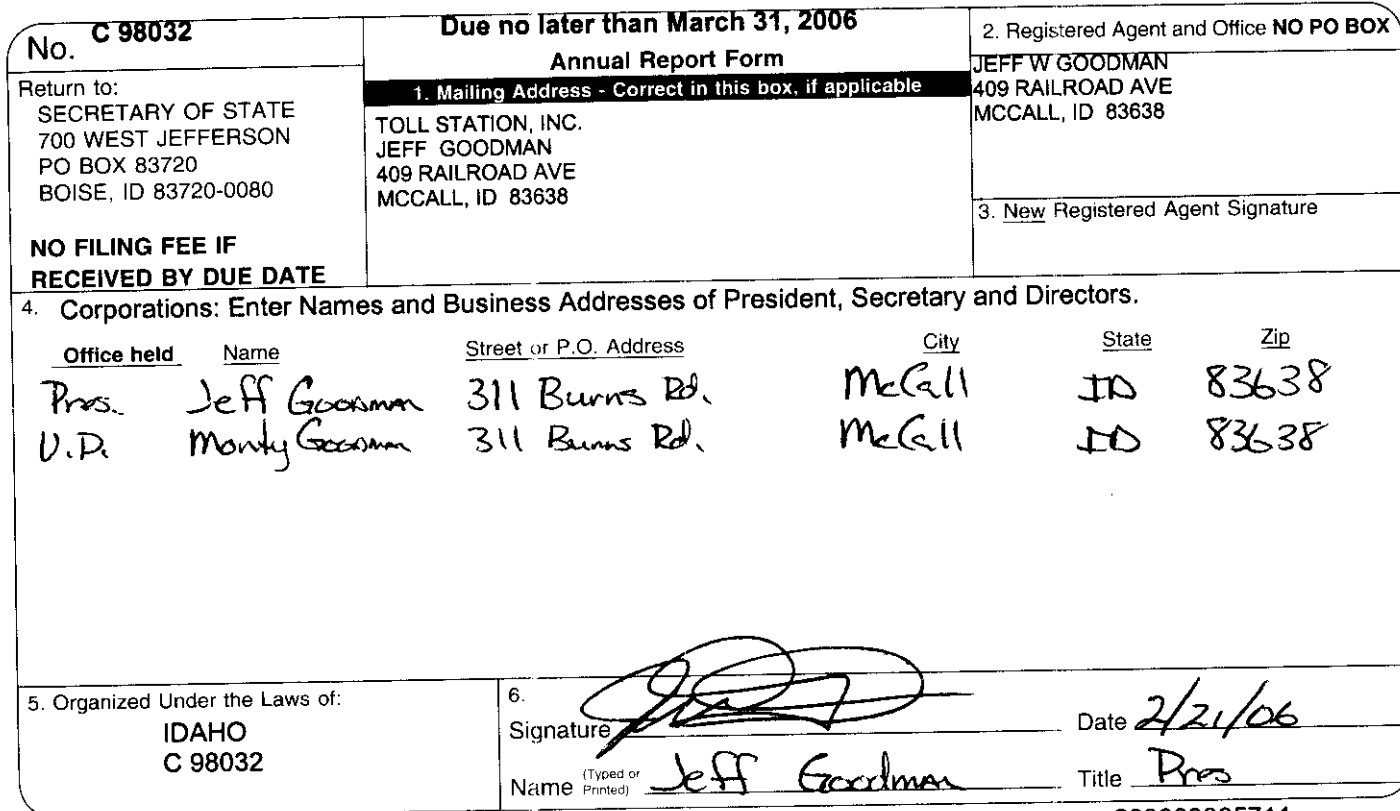 No. C 98032
Due no later than March 31, 2006
Annual Report Form
Return to:
SECRETARY OF STATE
700 WEST JEFFERSON
PO BOX 83720
BOISE, ID 83720-0080
NO FILING FEE IF
RECEIVED BY DUE DATE
1. Mailing Address - Correct in this box, if applicable
TOLL STATION, INC.
JEFF GOODMAN
409 RAILROAD AVE
MCCALL, ID 83638
2. Registered Agent and Office NO PO BOX
JEFF W GOODMAN
409 RAILROAD AVE
MCCALL, ID 83638
3. New Registered Agent Signature
4. Corporations: Enter Names and Business Addresses of President, Secretary and Directors.
Office held Name Street or P.O. Address City State Zip
Pres. Jeff Goodman 311 Burns Rd. McCall ID 83638
V.P. Monty Goodman 311 Burns Rd. McCall ID 83638
5. Organized Under the Laws of:
IDAHO
C 98032
6.
Signature Date 2/21/06
Name (Typed or Printed) Jeff Goodman Title Pres